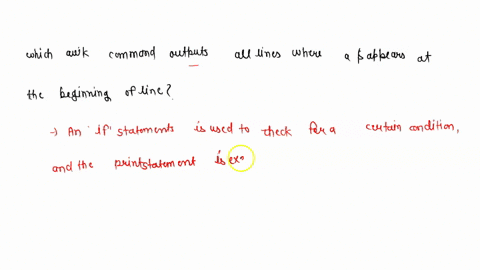 which awk command outputs all lines where a p appears at
the beginning of line?
→ An 'if' statements is used to check for a certain condition,
and the print statement is exe